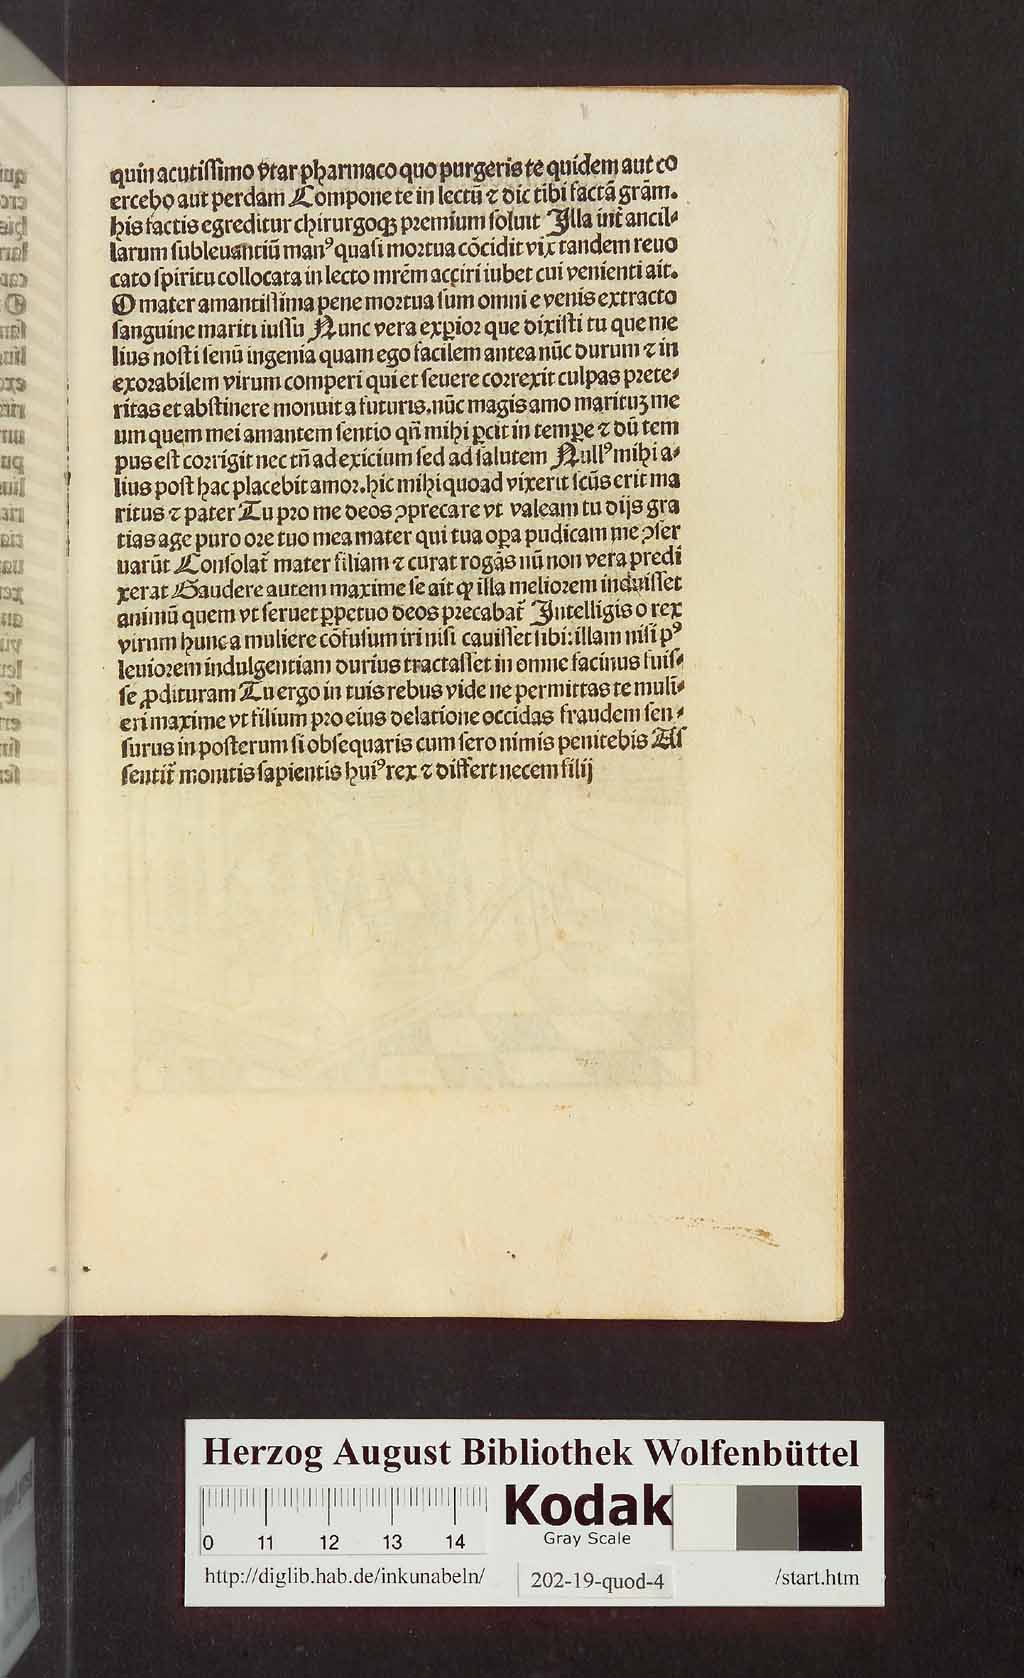 quin acutissimo vtar pharmaco quo purgeris te quidem aut co
ercebo aut perdam Compone te in lectū ⁊ dic tibi factā gram̄.
his factis egreditur chirurgoqꝫ premium soluit Illa int̄ ancil⸗
larum subleuantiū manꝰ quasi mortua cōcidit vix tandem reuo
cato spiritu collocata in lecto mrēm acciri iubet cui venienti ait.
O mater amantissima pene mortua sum omni e venis extracto
sanguine mariti iussu Nunc vera experior que dixisti tu que me
lius nosti senū ingenia quam ego facilem antea nūc durum ⁊ in
exorabilem virum comperi qui et seuere correxit culpas prete⸗
ritas et abstinere monuit a futuris. nūc magis amo marituꝫ me
um quem mei amantem sentio qn̄ mihi ꝑcit in tempe ⁊ dū tem
pus est corrigit nec tn̄ ad exicium sed ad salutem Nullꝰ mihi a⸗
lius post hac placebit amor. hic mihi quoad vixerit scūs erit ma
ritus ⁊ pater Tu pro me deos ꝯprecare vt valeam tu dijs gra
tias age puro ore tuo mea mater qui tua oꝑa pudicam me ꝯser
uarūt Consolat̄ mater filiam ⁊ curat rogās nū non vera predi
xerat Gaudere autem maxime se ait ꝙ illa meliorem induisset
animū quem vt seruet ꝑpetuo deos precabat̄ Intelligis o rex
virum hunc a muliere cōfusum iri nisi cauisset sibi: illam nisi pꝰ
leuiorem indulgentiam durius tractasset in omne facinus fuis⸗
se ꝓdituram Tu ergo in tuis rebus vide ne permittas te muli⸗
eri maxime vt filium pro eius delatione occidas fraudem sen⸗
surus in posterum si obsequaris cum sero nimis penitebis As
sentit̄ monitis sapientis huiꝰ rex ⁊ differt necem filij
Herzog August Bibliothek Wolfenbüttel
Kodak
Gray Scale
0 11 12 13 14
http://diglib.hab.de/inkunabeln/ 202-19-quod-4 /start.htm